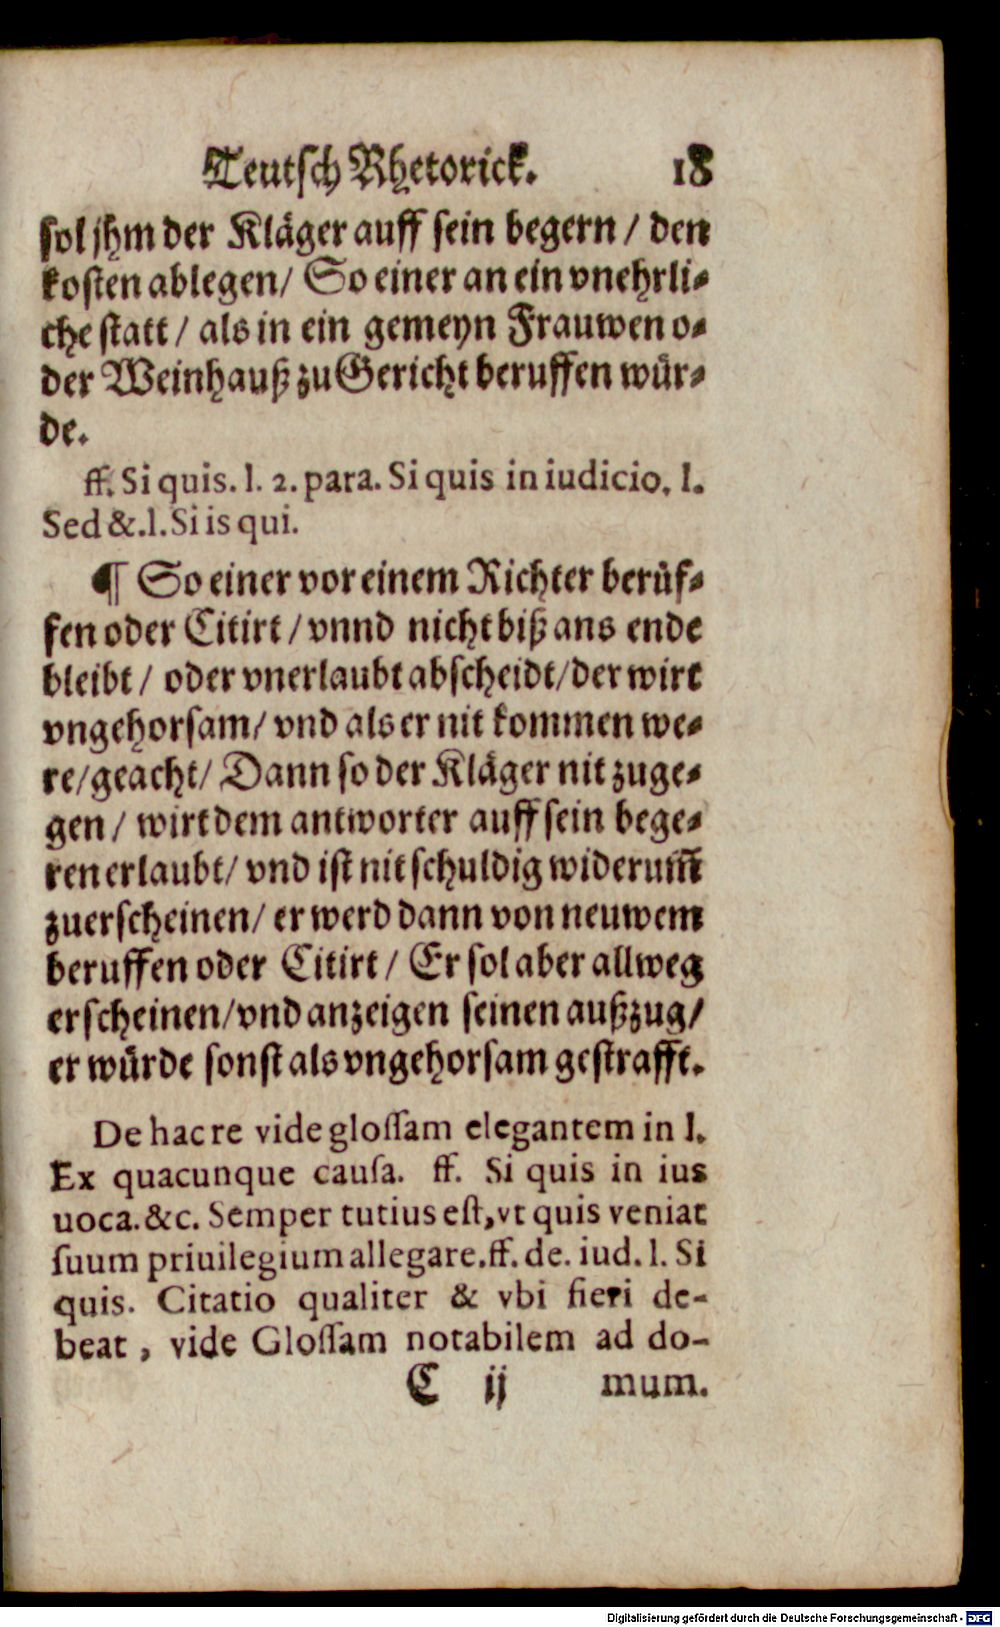 Teutsch Rhetorick. 18
sol jhm der Kläger auff sein begern / den
kosten ablegen / So einer an ein vnehrli-
che statt / als in ein gemeyn Frauwen o-
der Weinhauß zu Gericht beruffen wür-
de.
ff. Si quis. l. 2. para. Si quis in iudicio. l.
Sed &. l. Si is qui.
¶ So einer vor einem Richter berüf-
fen oder Citirt / vnnd nicht biß ans ende
bleibt / oder vnerlaubt abscheidt / der wirt
vngehorsam / vnd als er nit kommen we-
re / geacht / Dann so der Kläger nit zuge-
gen / wirt dem antworter auff sein bege-
ren erlaubt / vnd ist nit schuldig widerum̃
zuerscheinen / er werd dann von neuwem
beruffen oder Citirt / Er sol aber allweg
erscheinen / vnd anzeigen seinen außzug /
er würde sonst als vngehorsam gestrafft.
De hac re vide glossam elegantem in l.
Ex quacunque causa. ff. Si quis in ius
uoca. &c. Semper tutius est, vt quis veniat
suum priuilegium allegare. ff. de. iud. l. Si
quis. Citatio qualiter & vbi fieri de-
beat, vide Glossam notabilem ad do-
C ij mum.
Digitalisierung gefördert durch die Deutsche Forschungsgemeinschaft - DFG